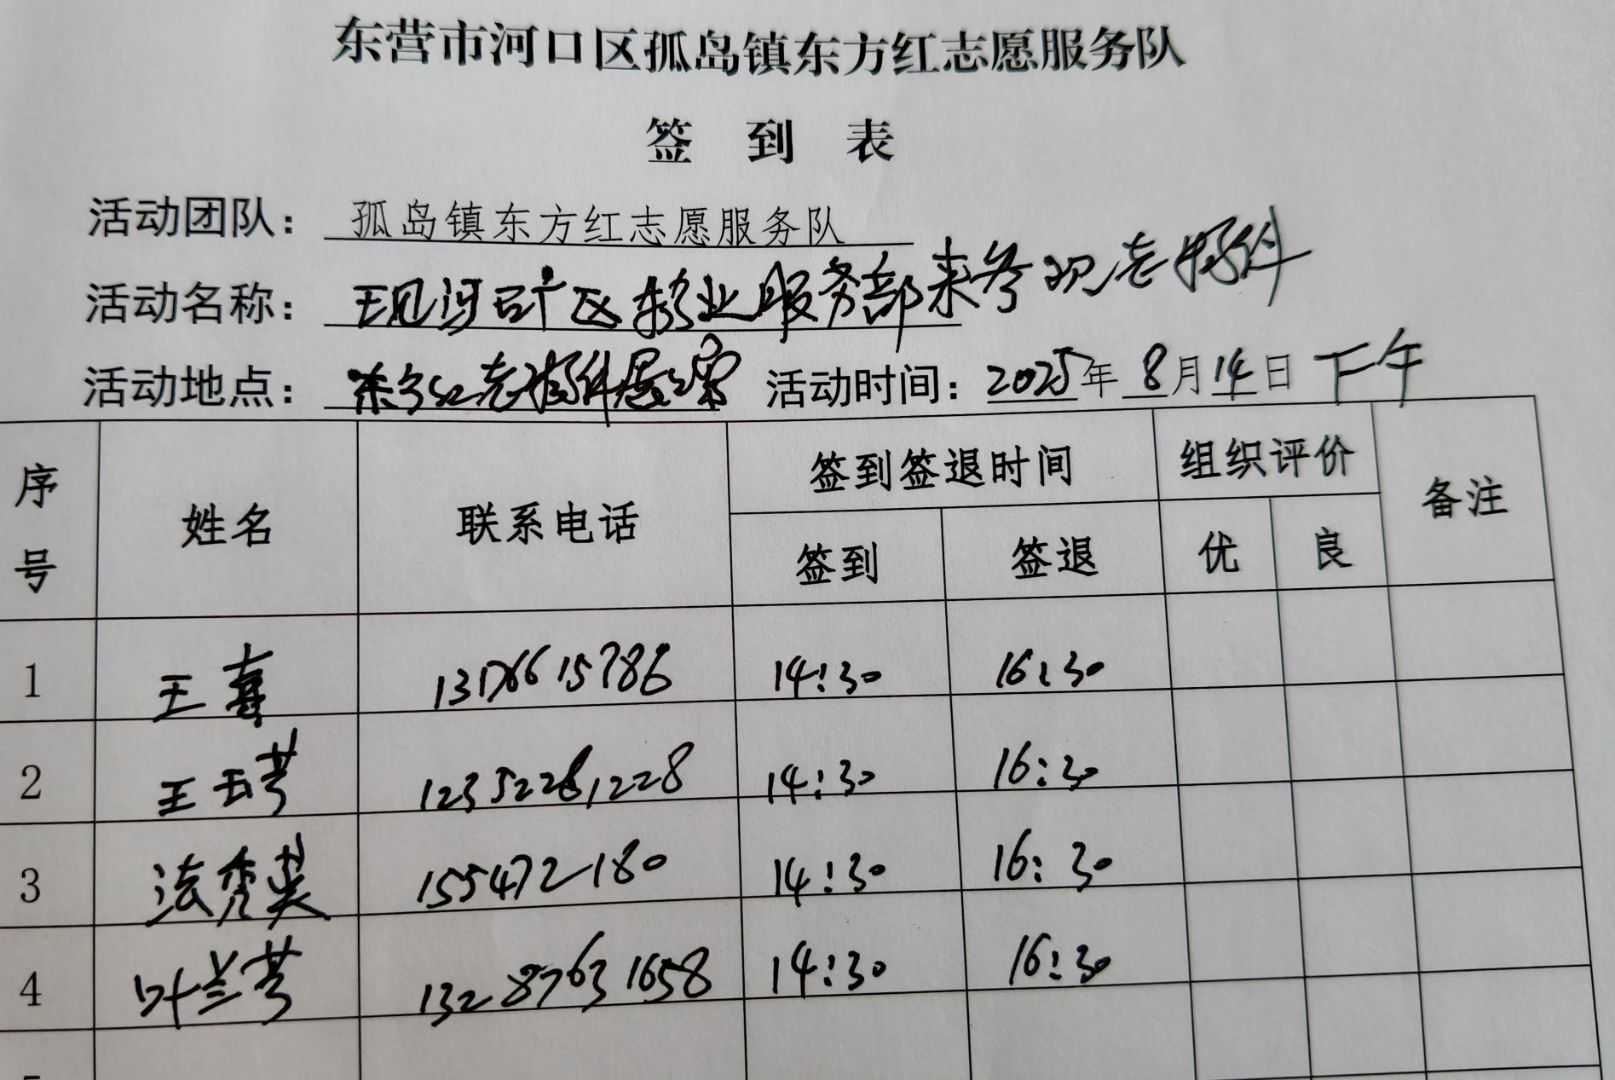 东营市河口区孤岛镇东方红志愿服务队
签 到 表
活动团队： 孤岛镇东方红志愿服务队
活动名称： 现河矿区物业服务部来参观老物件
活动地点： 东方红老物件展室 活动时间：2025年8月14日下午
序号 姓名 联系电话 签到签退时间 组织评价 备注
签到 签退 优 良
1 王喜 13176615786 14:30 16:30
2 王玉芳 12352281228 14:30 16:30
3 秀英 155472180 14:30 16:30
4 叶兰芳 13287631658 14:30 16:30